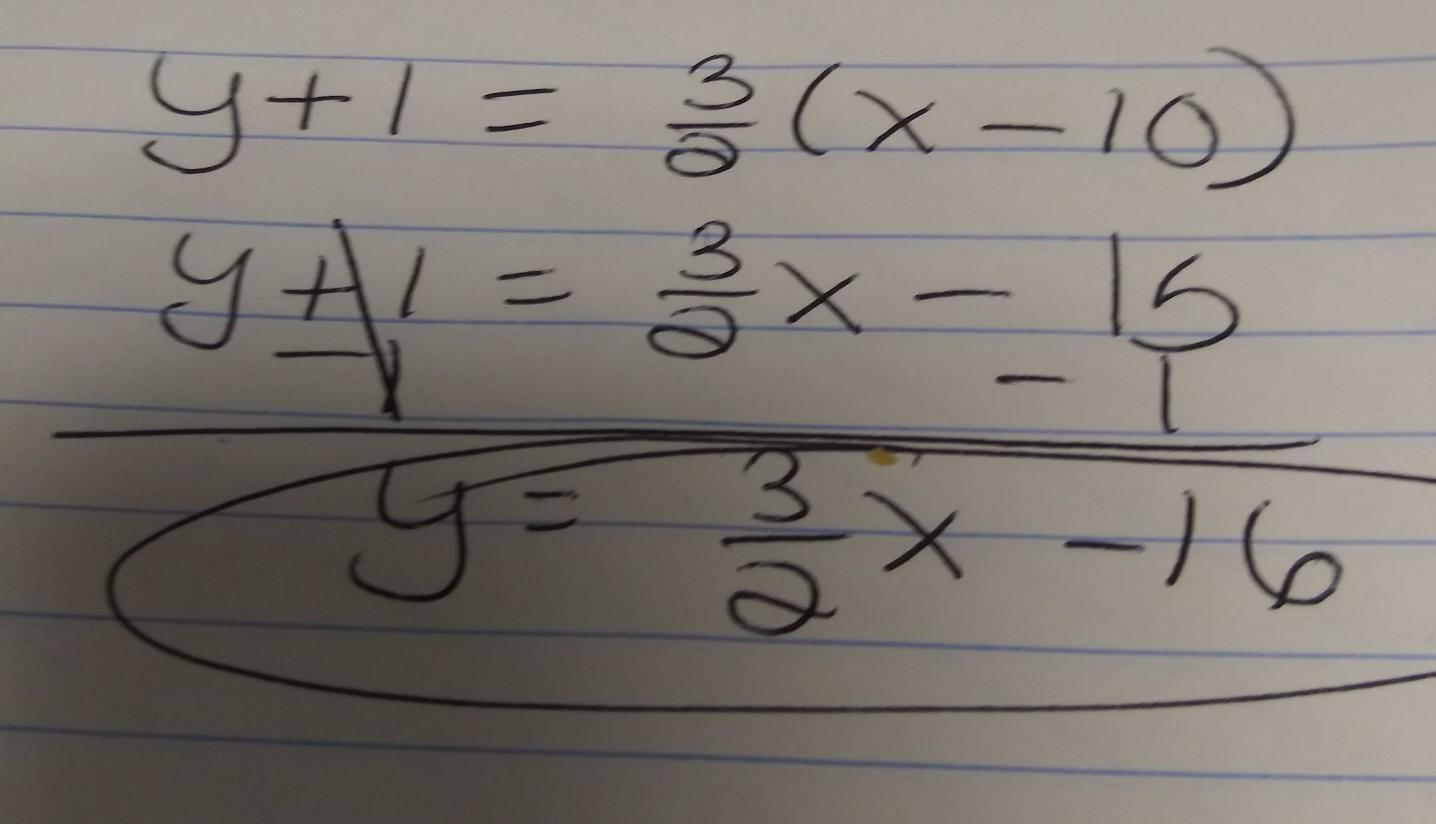 y + 1 = 3/2 (x - 10)
y + 1 = 3/2 x - 15
- 1 - 1
y = 3/2 x - 16